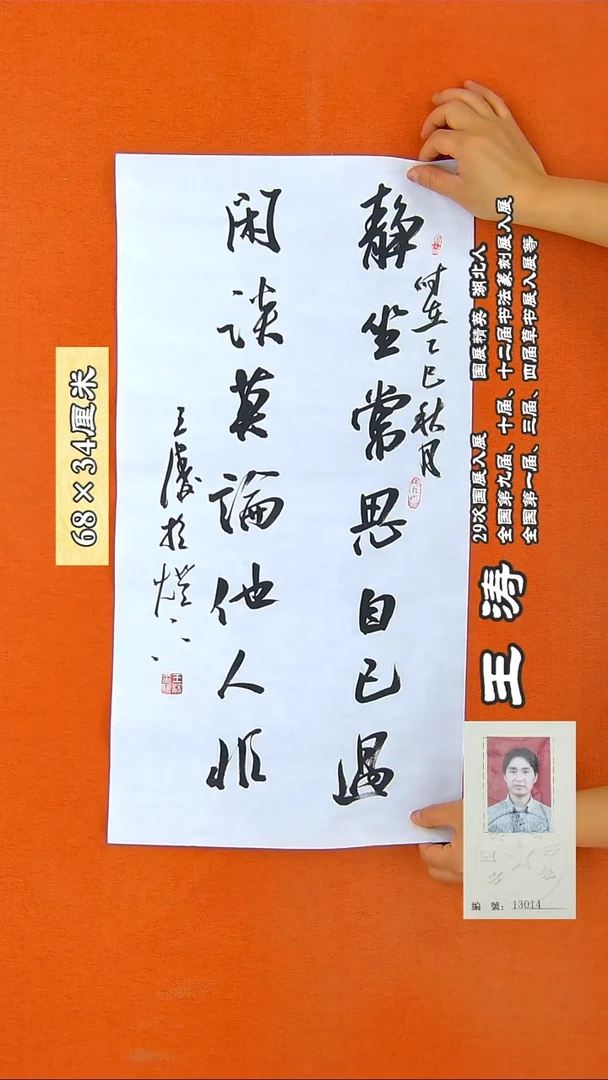 静坐常思自己过
闲谈莫論他人非
时在乙巳秋月
王涛
68×34厘米
王涛
29次国展入展 国展精英 湖北人
全国第九届、十届、十二届书法篆刻展入展
全国第一届、三届、四届草书展入展等
編 號：13014